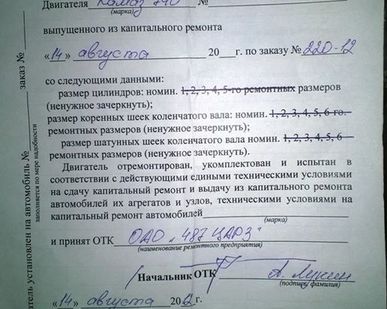 Двигателя Камаз 740
(марка)
выпущенного из капитального ремонта
«14» августа 20 г. по заказу № 220-12
со следующими данными:
размер цилиндров: номин. 1, 2, 3, 4, 5-го ремонтных размеров
(ненужное зачеркнуть);
размер коренных шеек коленчатого вала: номин. 1, 2, 3, 4, 5, 6-го
ремонтных размеров (ненужное зачеркнуть);
размер шатунных шеек коленчатого вала номин. 1, 2, 3, 4, 5, 6
ремонтных размеров (ненужное зачеркнуть);
Двигатель отремонтирован, укомплектован и испытан в
соответствии с действующими едиными техническими условиями
на сдачу капитальный ремонт и выдачу из капитального ремонта
автомобилей их агрегатов и узлов, техническими условиями на
капитальный ремонт автомобилей
(марка)
и принят ОТК ОАО "487 ЦАРЗ"
(наименование ремонтного предприятия)
Начальник ОТК
(подпись фамилия)
«14» августа 2012
заказ №
установлен на автомобиль №
заполняется по мере надобности